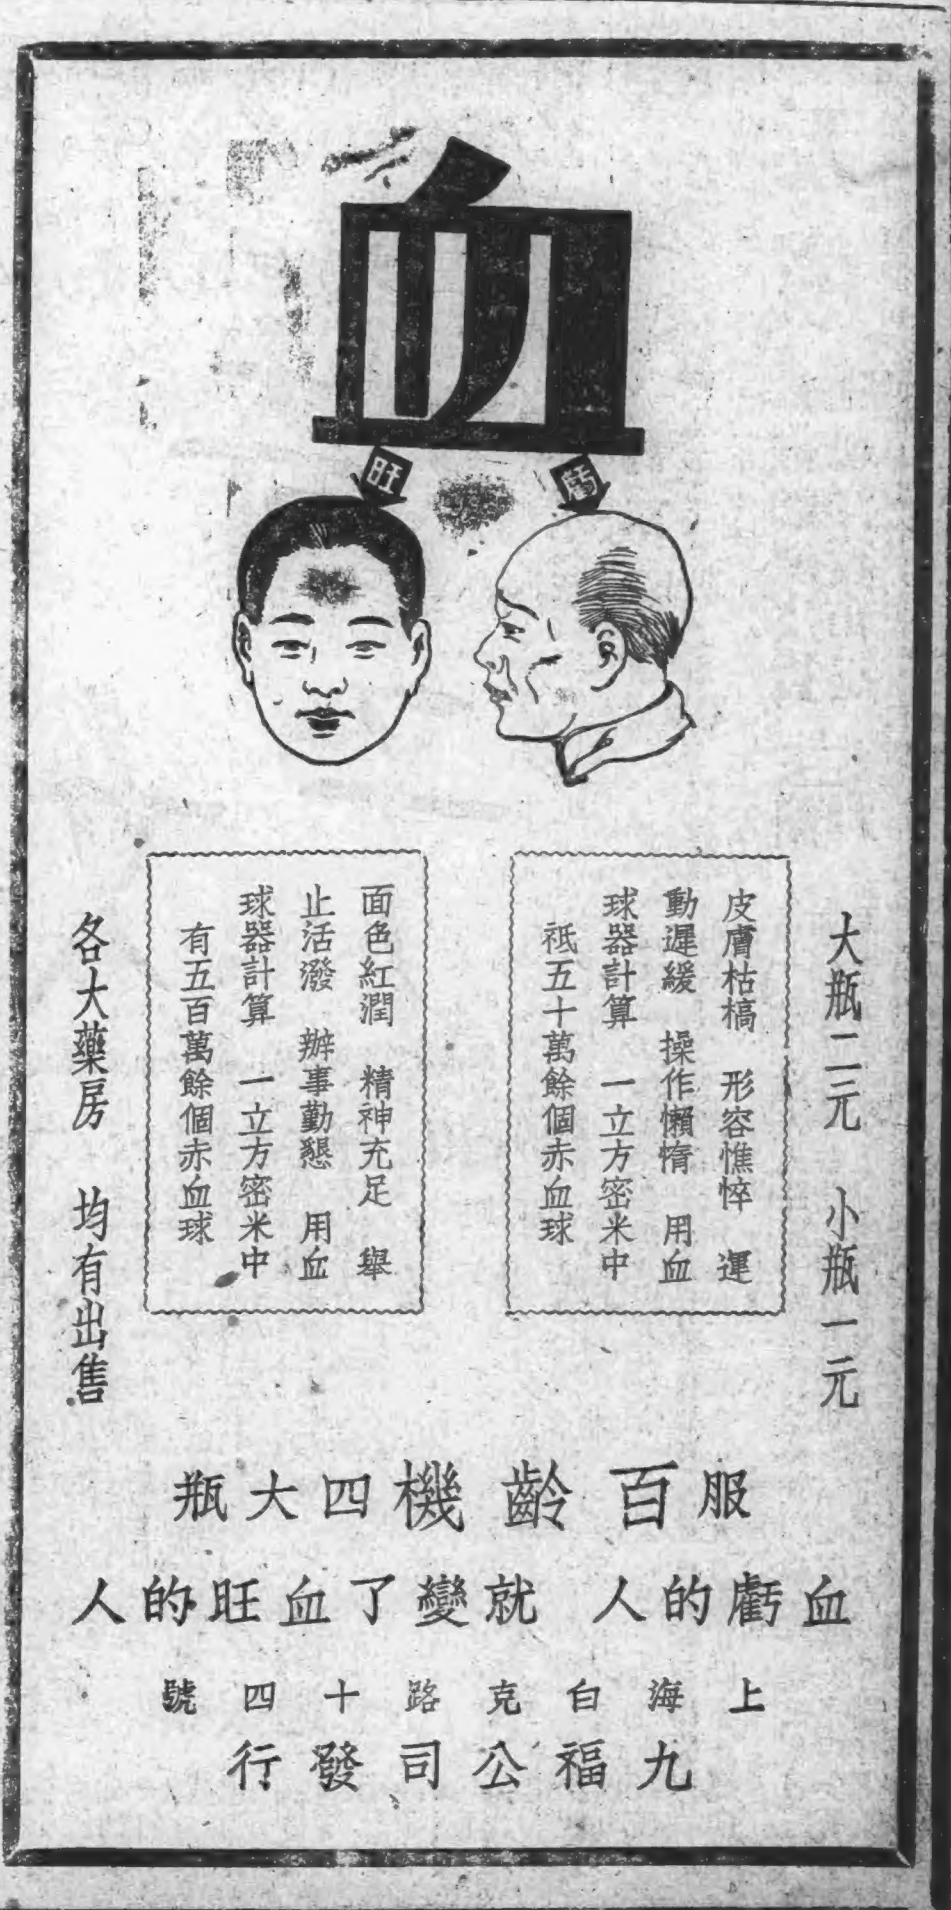 血
虧
旺
大瓶二元　小瓶一元
皮膚枯槁　形容憔悴　運
動遲緩　操作懶惰　用血
球器計算　一立方密米中
祗五十萬餘個赤血球
面色紅潤　精神充足　舉
止活潑　辦事勤懇　用血
球器計算　一立方密米中
有五百萬餘個赤血球
各大藥房　均有出售
服百齡機四大瓶
血虧的人　就變了血旺的人
上海白克路十四號
九福公司發行